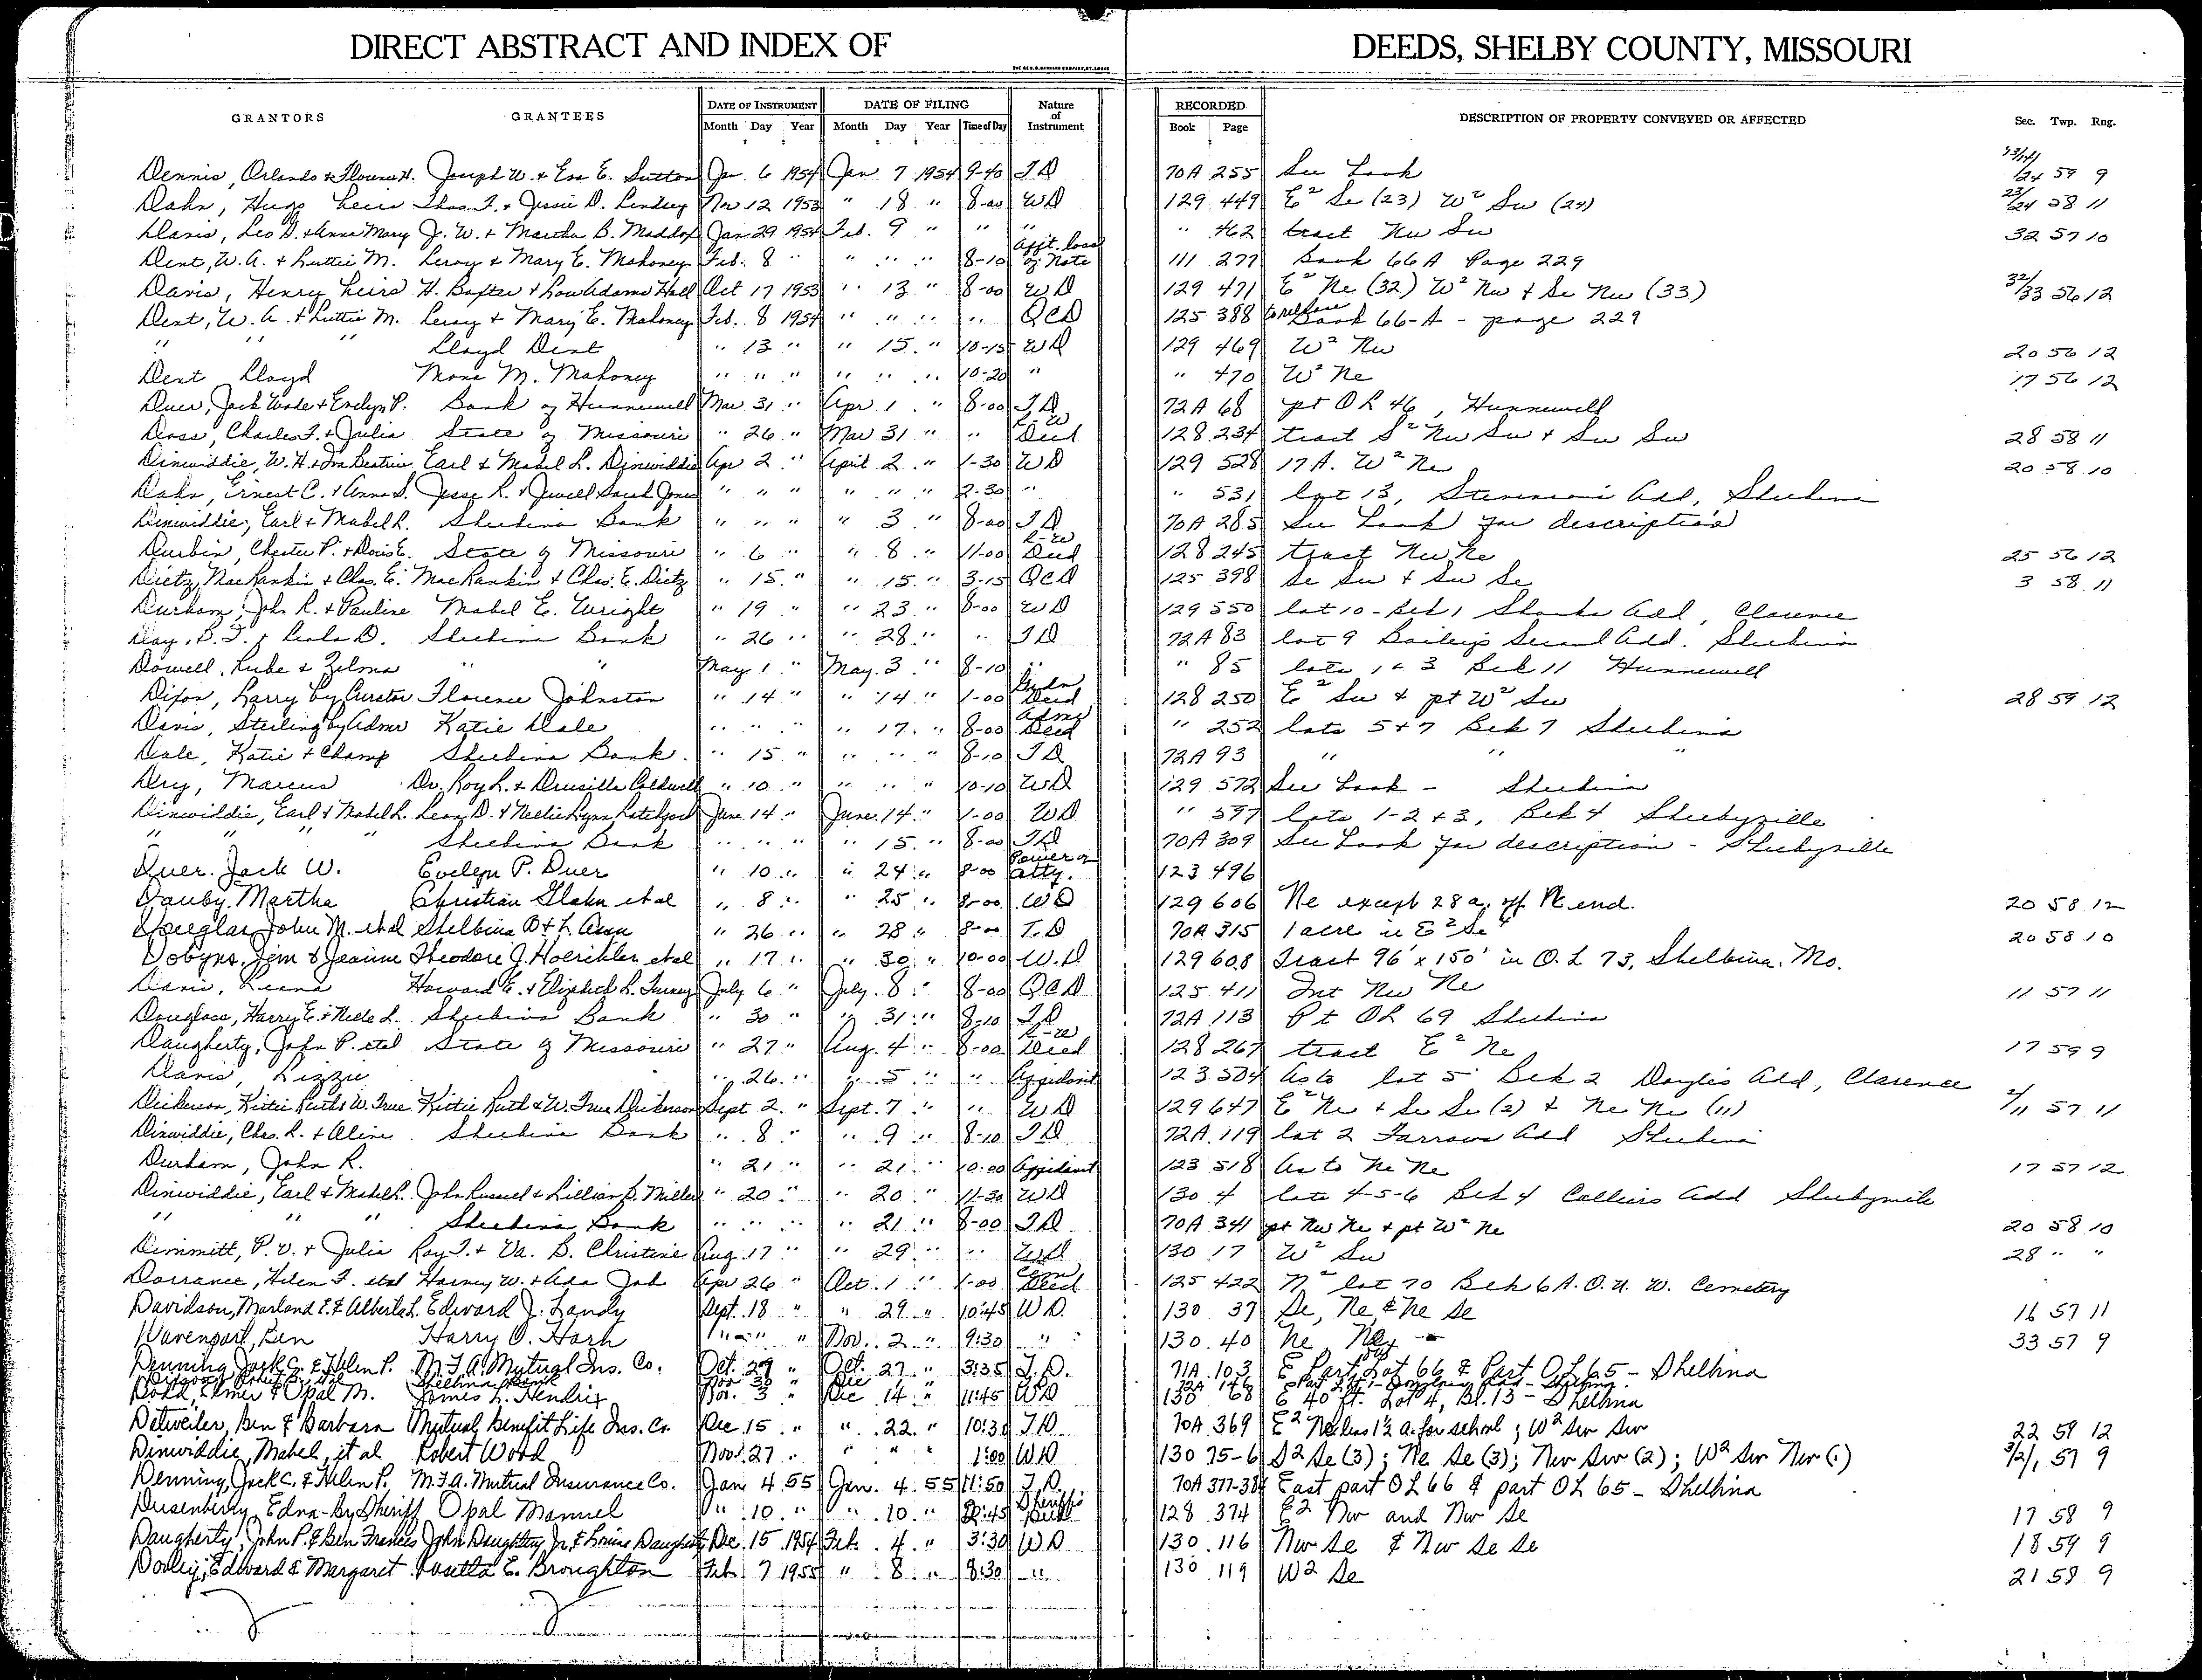 DIRECT ABSTRACT AND INDEX OF DEEDS, SHELBY COUNTY, MISSOURI
GRANTORS GRANTEES DATE OF INSTRUMENT DATE OF FILING Nature of Instrument RECORDED DESCRIPTION OF PROPERTY CONVEYED OR AFFECTED Sec. Twp. Rng.
Month Day Year Month Day Year Time of Day Book Page
Dennis, Orlando & Florence H. Joseph W. & Eva E. Sutton Jan. 6 1954 Jan. 7 1954 9-40 T D 70A 255 See book 13/14/24 59 9
Dahn, Hugo heirs Thos. F. & Jessie D. Lindsey Nov 12 1953 " 18 " 8-00 WD 129 449 E² Se (23) W² Sw (24) 23/24 58 11
Davis, Leo D. & Anna Mary J. W. & Martha B. Maddox Jan 29 1954 Feb. 9 " " " " 462 tract Nw Sw 32 57 10
Dent, W. A. & Luttie M. Leroy & Mary E. Mahoney Feb. 8 " " " " 8-10 Afft. loss of Note 111 277 Book 66A Page 229
Davis, Henry heirs H. Baxter & Lou Adams Hall Oct 17 1953 " 13 " 8-00 WD 129 471 E² Ne (32) W² Nw & Se Nw (33) 32/33 56 12
Dent, W. A. & Luttie M. Leroy & Mary E. Mahoney Feb. 8 1954 " " " " QCD 125 388 to release Book 66-A - page 229
" " " Lloyd Dent " 13 " " 15 " 10-15 WD 129 469 W² Nw 20 56 12
Dent Lloyd Mona M. Mahoney " " " " " " 10-20 " " 470 W² Ne 17 56 12
Duer, Jack Wade & Evelyn P. Bank of Hunnewell Mar 31 " Apr 1 " 8-00 T D 72A 68 pt OL 46, Hunnewell
Doss, Charles F. & Julia State of Missouri " 26 " Mar 31 " " R-W Deed 128 234 tract S² Nw Sw & Sw Sw 28 58 11
Dinwiddie, W. H. & Ina Beatrice Earl & Mabel L. Dinwiddie Apr 2 " April 2 " 1-30 WD 129 528 17A. W² Ne 20 58 10
Dahn, Ernest C. & Anna S. Jesse R. & Jewell Sarah Jones " " " " " " 2-30 " " 531 lot 13, Add, Shelbina
Dinwiddie, Earl & Mabel L. Shelbina Bank " " " " 3 " 8-00 T D 70A 285 See book for description
Durbin, Chester P. & Doris E. State of Missouri " 6 " " 8 " 11-00 R-W Deed 128 245 tract Nw Ne 25 56 12
Dietz, Mae Rankin & Chas. E. Mae Rankin & Chas. E. Dietz " 15 " " 15 " 3-15 QCD 125 398 Se Sw & Sw Se 3 58 11
Durham, John R. & Pauline Mabel E. Wright " 19 " " 23 " 8-00 WD 129 550 lot 10 - Blk 1 Shanks Add, Clarence
Day, B. F. & Leola D. Shelbina Bank " 26 " " 28 " " T D 72A 83 lot 9 Bailey's Second Add. Shelbina
Dowell, Lube & Zelma " " May 1 " May 3 " 8-10 " " 85 lots 1 & 3 Blk 11 Hunnewell
Dixon, Larry by Curator Florence Johnston " 14 " " 14 " 1-00 Grdn Deed 128 250 E² Sw & pt W² Sw 28 59 12
Davis, Sterling by Admr Katie Dale " " " " 17 " 8-00 Adms Deed " 252 lots 5 & 7 Blk 7 Shelbina
Dale, Katie & Champ Shelbina Bank " 15 " " " " 8-10 T D 72A 93 " " "
Dry, Marcus Dr. Roy L. & Drusilla Caldwell " 10 " " " " 10-10 WD 129 572 See book - Shelbina
Dinwiddie, Earl & Mabel L. Leon D. & Nellie Lynn June 14 " June 14 " 1-00 WD " 597 lots 1-2 & 3, Blk 4 Shelbyville
" " " " Shelbina Bank " " " " 15 " 8-00 T D 70A 309 See book for description - Shelbyville
Duer, Jack W. Evelyn P. Duer " 10 " " 24 " 8-00 Power of Atty. 123 496
Dauby, Martha Christian Glahn et al " 8 " " 25 " 8-00 WD 129 606 Ne except 28 a. off N end. 20 58 12
Douglas, John M. et al Shelbina B & L Assn " 26 " " 28 " 8-00 T. D 70A 315 1 acre in E² Se 20 58 10
Dobyns, Jim & Jeanine Theodore J. Hoerichler et al " 17 " " 30 " 10-00 W. D 129 608 Tract 96' x 150' in O. L 73, Shelbina. Mo.
Davis, Leana Howard E. & Elizabeth L. Turney July 6 " July 8 " 8-00 QCD 125 411 Int Nw Ne 11 57 11
Douglass, Harry E. & Nelle L. Shelbina Bank " 30 " " 31 " 8-10 T D 72A 113 Pt OL 69 Shelbina
Daugherty, John P. etal State of Missouri " 27 " Aug. 4 " 8-00 R-W Deed 128 267 tract E² Ne 17 59 9
Davis, Lizzie " 26 " " 5 " " Affidavit 123 504 As to lot 5 Blk 2 Add, Clarence
Dickerson, Kittie Ruth & W. True Kittie Ruth & W. True Dickerson Sept. 2 " Sept. 7 " " WD 129 647 E² Ne & Se Se (2) & Ne Ne (11) 2/11 57 11
Dinwiddie, Chas. R. & Aline Shelbina Bank " 8 " " 9 " 8-10 T D 72A 119 lot 2 Farrows Add Shelbina
Durham, John R. " 21 " " 21 " 10-00 Affidavit 123 518 As to Ne Ne 17 57 12
Dinwiddie, Earl & Mabel L. John Russell & Lillian B. Miller " 20 " " 20 " 11-30 WD 130 4 lots 4-5-6 Blk 4 Colliers Add Shelbyville
" " " Shelbina Bank " " " " 21 " 8-00 T D 70A 341 pt Nw Ne & pt W² Ne 20 58 10
Dimmitt, P. V. & Julia Ray T. & Va. B. Christine Aug. 17 " " 29 " " WD 130 17 W² Sw 28 " "
Dorrance, Helen F. etal Harvey W. & Ada Job Apr 26 " Oct. 1 " 1-00 Cem Deed 125 422 N² lot 70 Blk 6 A. O. U. W. Cemetery
Davidson, Marland E. & Alberta L. Edward J. Landy Sept. 18 " " 29 " 10:45 WD. 130 37 Se, Ne, & Ne Se 16 57 11
Davenport, Ben Harry O. Hark " " " Nov. 2 " 9:30 " 130 40 Ne Ne 33 57 9
Denning, Jack C. & Helen P. M. F. A. Mutual Ins. Co. Oct. 27 " Oct. 27 " 3:35 T. D. 71A 103 E Part, Lot 66 & Part OL 65 - Shelbina
Shelbina Bank Nov 30 " Dec 72A 148
Elmer & Opal M. James L. Hendrix Nov. 3 " Dec 14 " 11:45 WD 130 68 E 40 ft. Lot 4, Bl. 13 - Shelbina
Detweiler, Ben & Barbara Mutual Benefit Life Ins. Co. Dec 15 " " 22 " 10:30 T. D 70A 369 E² Ne less 1½ a. for school; W² Sw Sw 22 59 12
Dinwiddie, Mabel, et al Robert Wood Nov. 27 " " " " 1:00 WD 130 75-6 S² Se (3); Ne Se (3); Nw Sw (2); W² Sw Nw (1) 3/2/1 57 9
Denning, Jack C. & Helen P. M. F. A. Mutual Insurance Co. Jan 4 55 Jan. 4 55 11:50 T. D. 70A 377-384 East part OL 66 & part OL 65 - Shelbina
Dusenberry, Edna - by Sheriff Opal Manuel " 10 " " 10 " :45 Sheriffs Deed 128 374 E² Nw and Nw Se 17 58 9
Daugherty, John P. & Ben Frances John Daughtry Jr. & Louise Daugherty Dec. 15 1954 Feb. 4 " 3:30 WD 130 116 Nw Se & Nw Se Se 18 59 9
Dooley, Edward & Margaret Rosetta E. Broughton Feb. 7 1955 " 8 " 8:30 " 130 119 W² Se 21 58 9